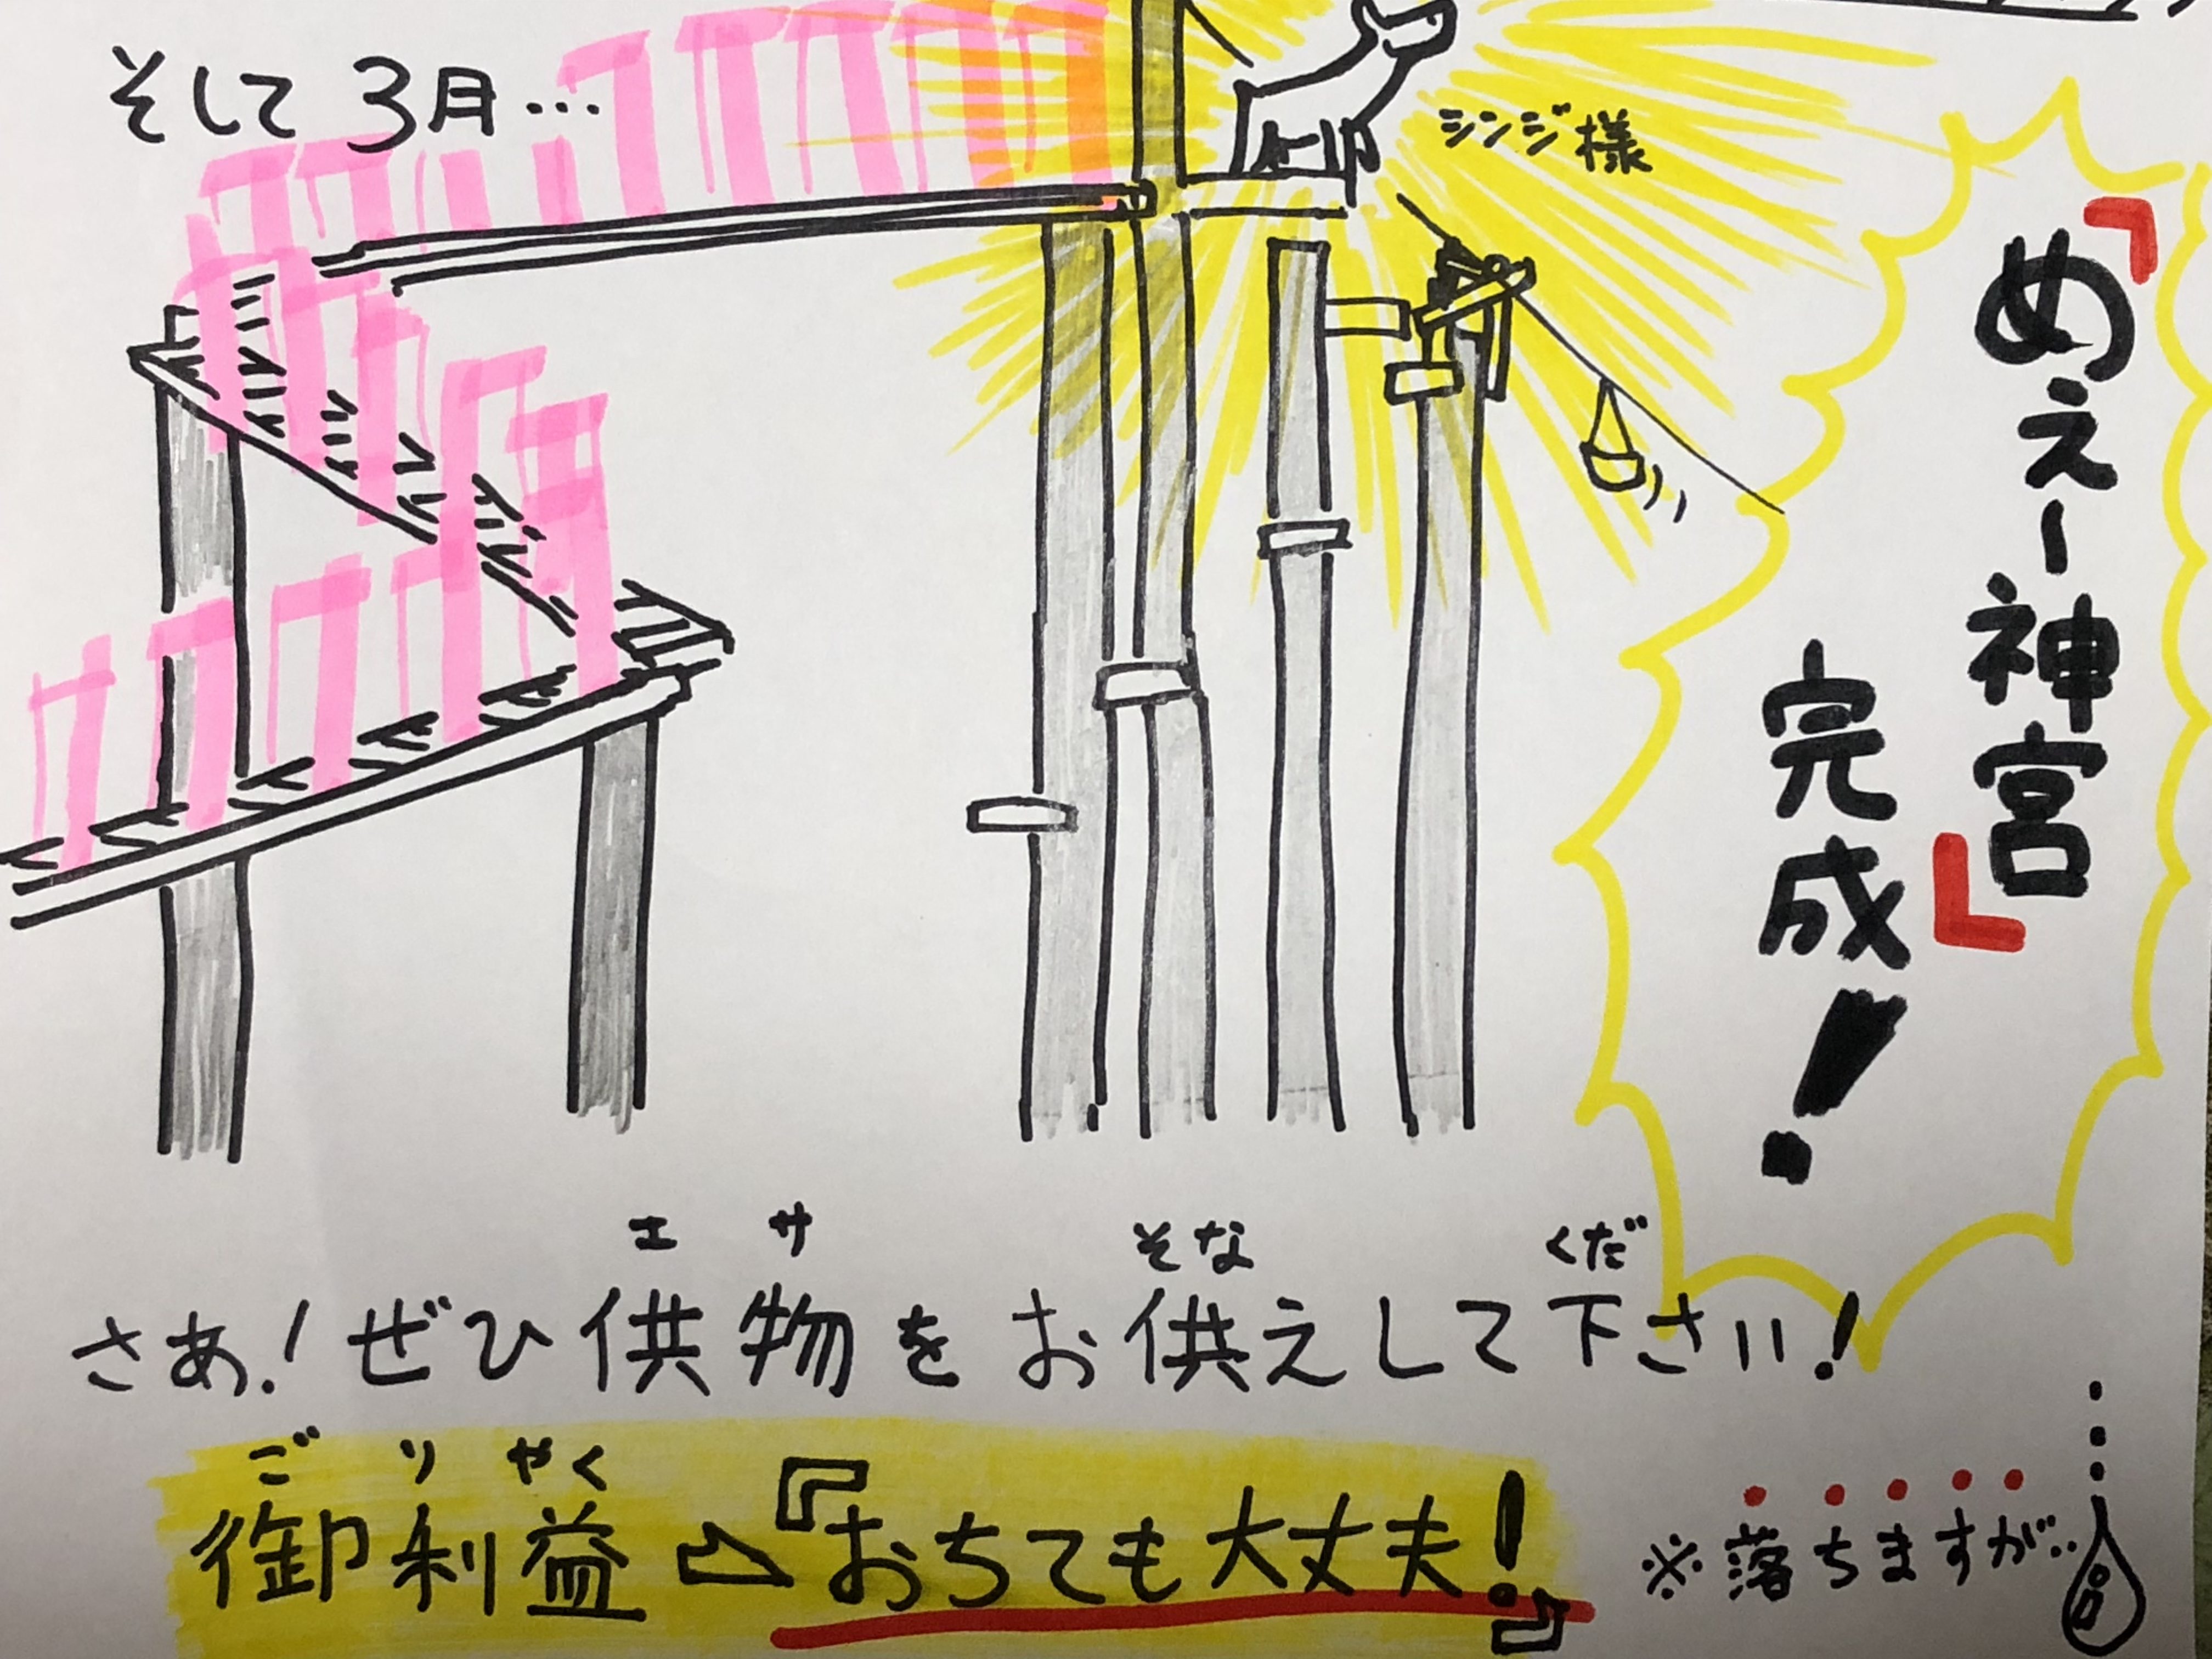 そして3月…
シンジ様
「めぇー神宮」
完成!
エサ そな くだ
さあ!ぜひ供物をお供えして下さい!
ごりやく
御利益 『おちても大丈夫!』
※落ちますが…